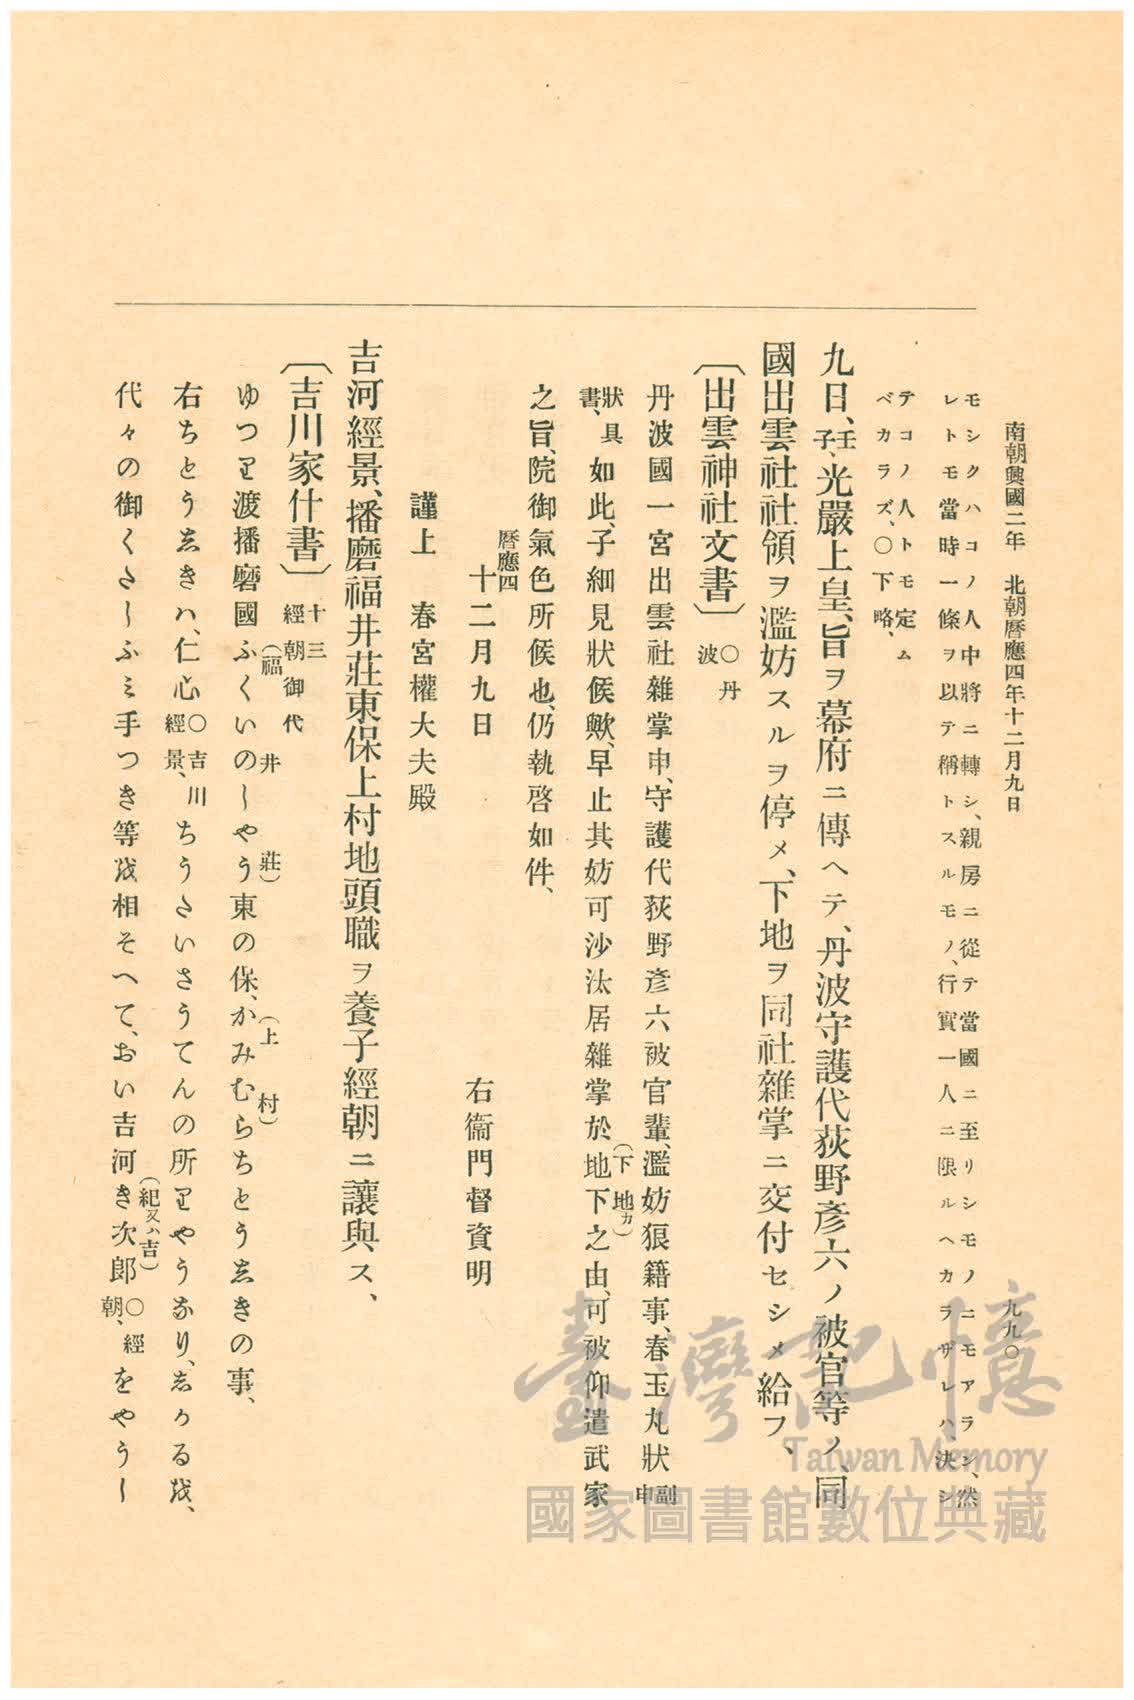 南朝興國二年 北朝曆應四年十二月九日
九九〇
モシクハコノ人中將ニ轉シ、親房ニ從テ當國ニ至リシモノニモアラン、然
レトモ當時一條ヲ以テ稱トスルモノ、行實一人ニ限ルヘカラザレハ、決シ
テコノ人トモ定ム
ベカラズ、〇下略、
九日、壬子、光嚴上皇、旨ヲ幕府ニ傳ヘテ、丹波守護代荻野彥六ノ被官等ノ、同
國出雲社社領ヲ濫妨スルヲ停メ、下地ヲ同社雜掌ニ交付セシメ給フ、
〔出雲神社文書〕〇丹波
丹波國一宮出雲社雜掌申、守護代荻野彥六被官輩、濫妨狼籍事、春玉丸狀副申
狀具書、如此、子細見狀候歟、早止其妨可沙汰居雜掌於地下(下地カ)之由、可被仰遣武家
之旨、院御氣色所候也、仍執啓如件、
曆應四
十二月九日
右衞門督資明
謹上 春宮權大夫殿
吉河經景、播磨福井莊東保上村地頭職ヲ養子經朝ニ讓與ス、
〔吉川家什書〕十三經朝御代
ゆつり渡播磨國ふくいのしやう(福井莊)東の保、かみむら(上村)ちとうしきの事、
右ちとうしきハ、仁心〇吉川經景、ちうたいさうてんの所りやうなり、しかる越、
代々の御くたしふミ手つき等越相そへて、おい吉河き(紀又ハ吉)次郎〇經朝、をやうし
臺灣記憶
Taiwan Memory
國家圖書館數位典藏